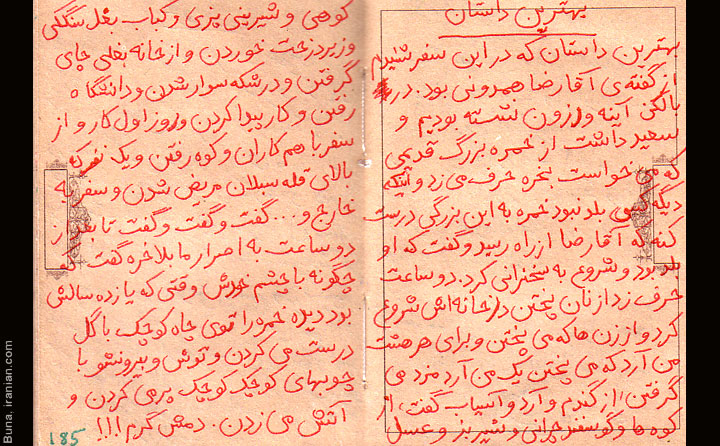 بهترین داستان
بهترین داستان که در این سفر شنیدم
از گفته‌ی آقا رضا همدونی بود. در
بالکن آینه وارزون نشسته بودیم و
سعید داشت از خمره بزرگ قدیمی
که می خواست بخره حرف می زد و اینکه
دیگه کسی بلد نبود خمره به این بزرگی درست
کنه که آقا رضا از راه رسید و گفت که او
بلد بود و شروع به سخنرانی کرد. دو ساعت
حرف زد از نان پختن در خانه اش شروع
کرد و از زن ها که می پختن و برای هر هشت
من آرد که می پختن یک من آرد مزد می
گرفتن، از گندم و آرد و آسیاب گفت، از
کوه ها و گوسفند چرانی و شیر بز و عسل
کوهی و شیرینی پزی و کباب بغل سنگلی
و زیر درخت خوردن و از خانه بغلی چای
گرفتن و درشکه سوار شدن و دانشگاه
رفتن و کار پیدا کردن و روز اول کار و از
سفر با هم کاران و کوه رفتن و یک نفر که
بالای قله سبلان مریض شدن و سفر به
خارج و... گفت و گفت و گفت تا بعد از
دو ساعت به اصرار ما بلاخره گفت که
چگونه با چشم خودش وقتی که یازده سالش
بود دیده خمره را توی چاه کوچک با گل
درست می کردن و توش و بیرونشو با
چوبهای کوچک کوچک پر می کردن و
آتش می زدن. دمش گرم!!!
185
Buna, iranian.com